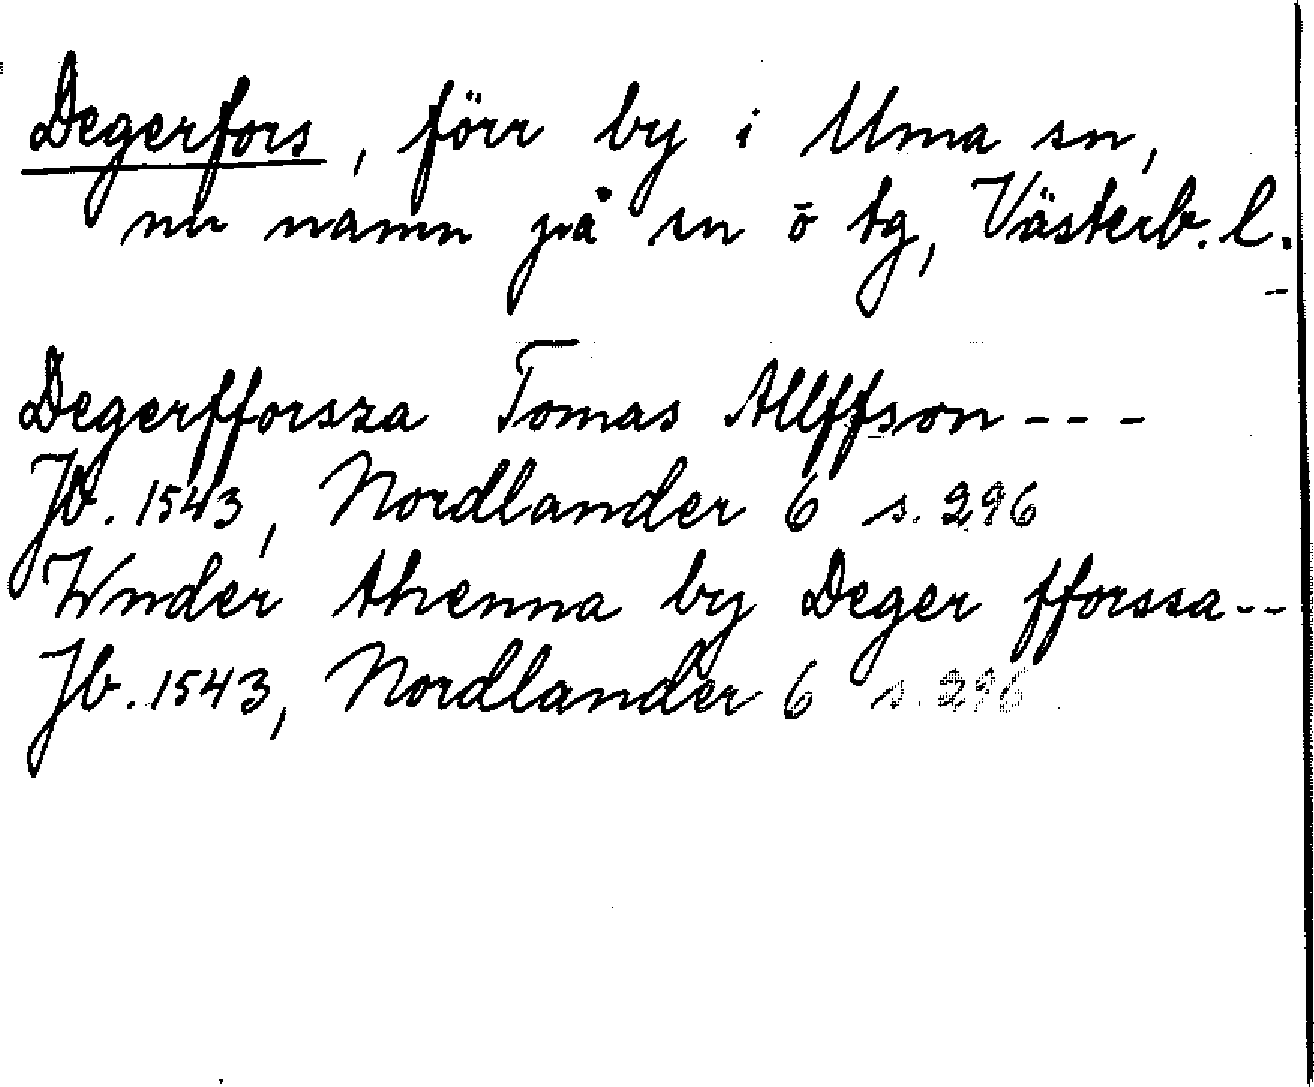 Degerfors, förr by i Uma sn,
nu namn på sn o tg, Västerb. l.
Degerfforsza Tomas Allffson - - -
Jb. 1543, Nordlander 6 s. 296
Wnder Ahenna by Deger fforssa - -
Jb. 1543, Nordlander 6 s. 296